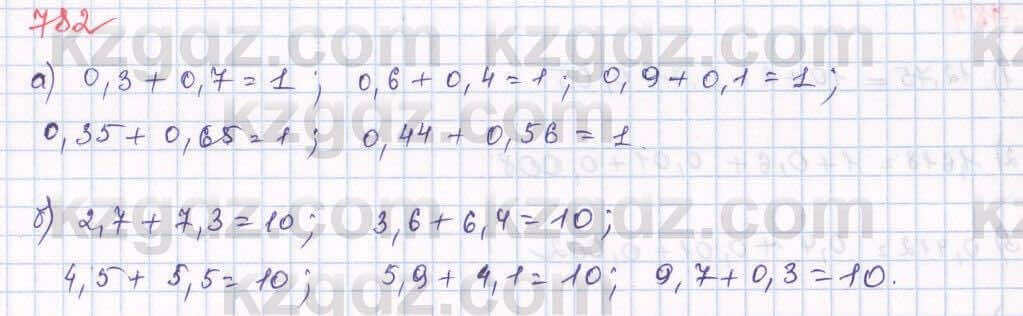 782
а) 0,3 + 0,7 = 1; 0,6 + 0,4 = 1; 0,9 + 0,1 = 1;
0,35 + 0,65 = 1; 0,44 + 0,56 = 1.
б) 2,7 + 7,3 = 10; 3,6 + 6,4 = 10;
4,5 + 5,5 = 10; 5,9 + 4,1 = 10; 9,7 + 0,3 = 10.